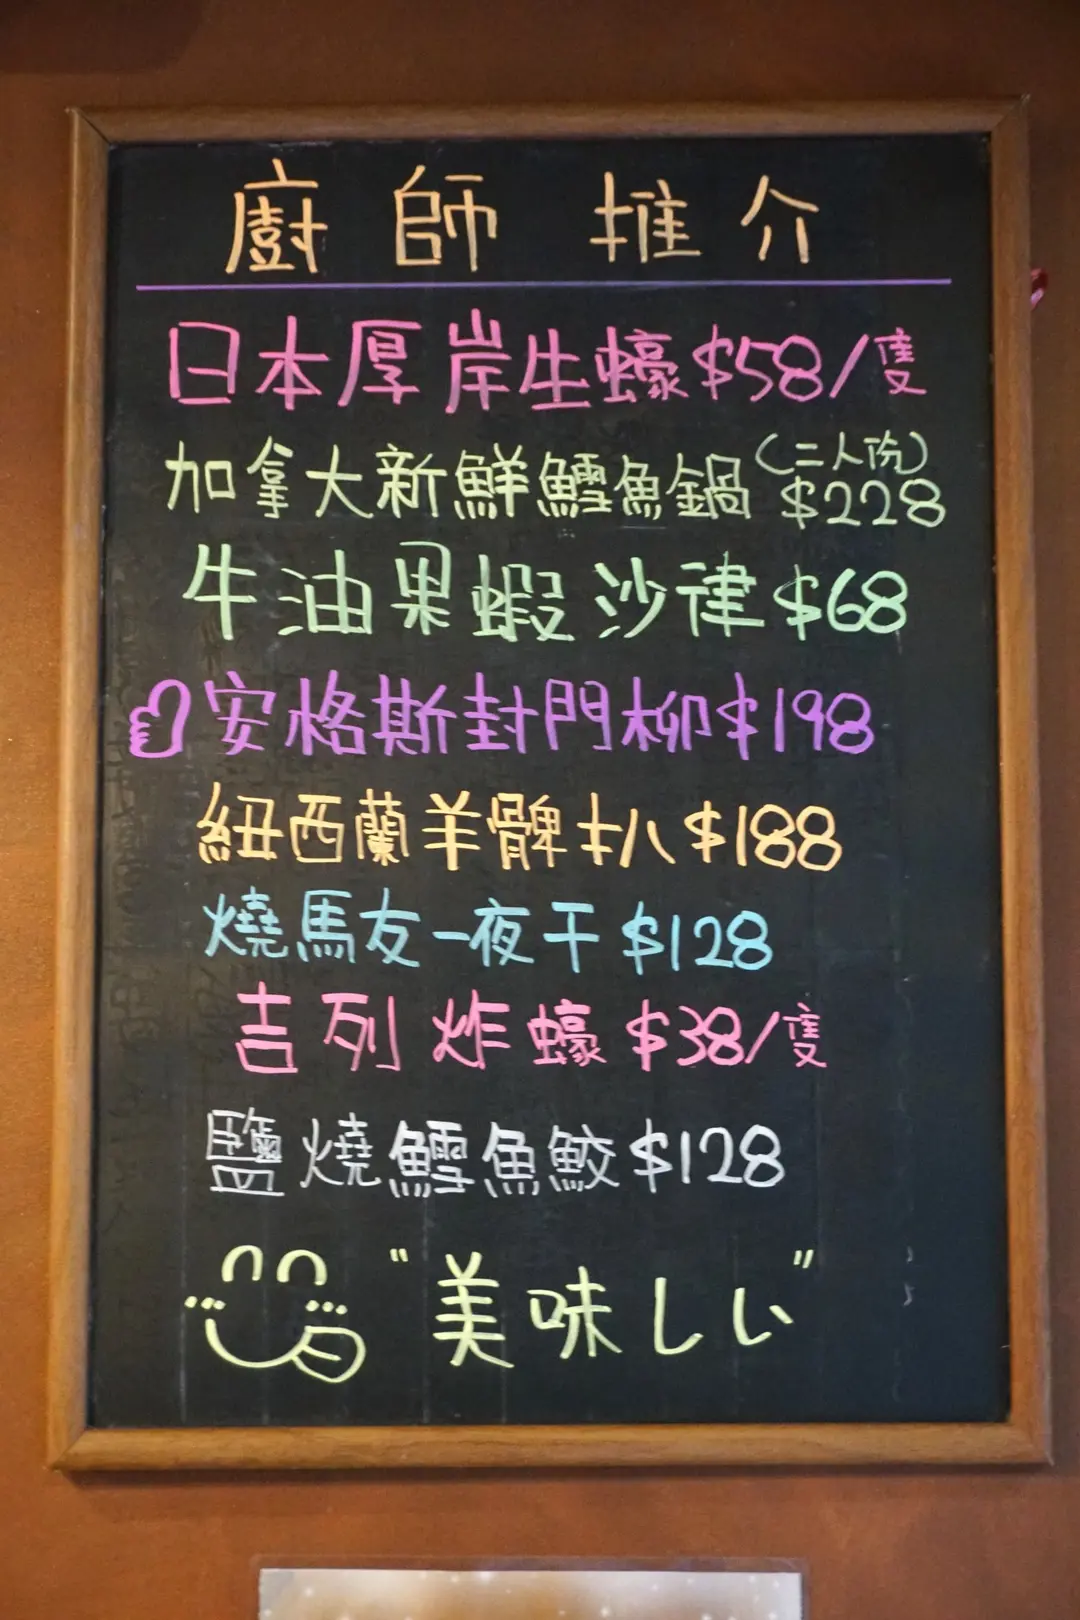 廚師推介
日本厚岸生蠔$58/隻
加拿大新鮮鱈魚鍋(二人份)$228
牛油果蝦沙律$68
安格斯封門柳$198
紐西蘭羊髀扒$188
燒馬友一夜干$128
吉列炸蠔$38/隻
鹽燒鱈魚鮫$128
"美味しい"